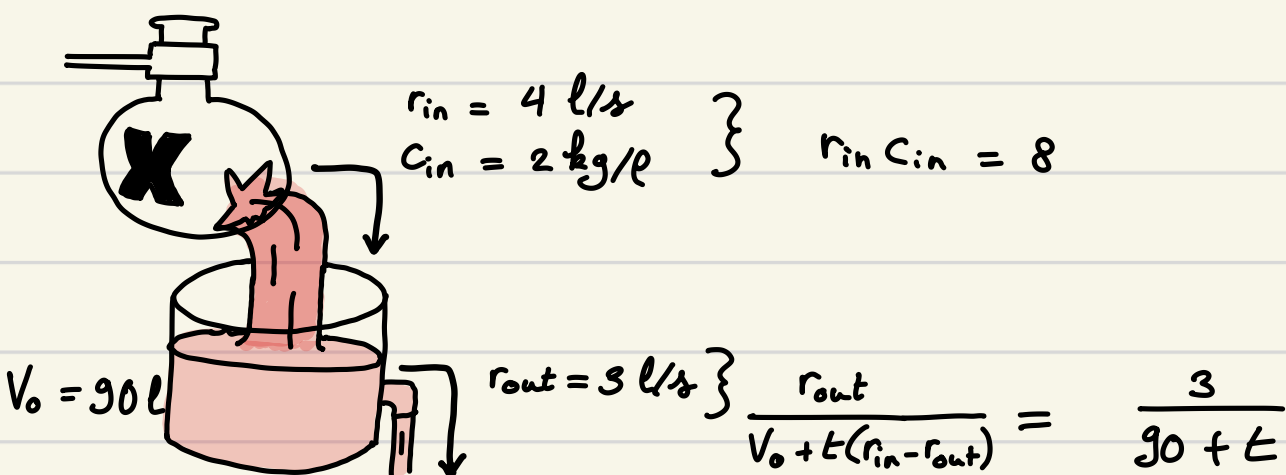 X
r_in = 4 l/s
c_in = 2 kg/l
} r_in c_in = 8
V_0 = 90 l
r_out = 3 l/s } r_out / (V_0 + t(r_in - r_out)) = 3 / (90 + t